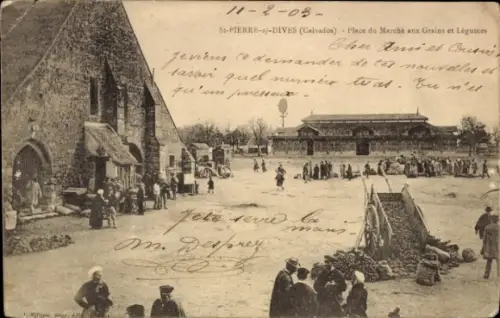 11-2-03
St-PIERRE-s/-DIVES (Calvados) - Place du Marché aux Grains et Légumes
Cher Ami et Cousin
je viens ce demander de ces nouvelles et
savoir quel numéro tu as. Tu n'es
qu'un paresseux
je te serre la
main
Desprez